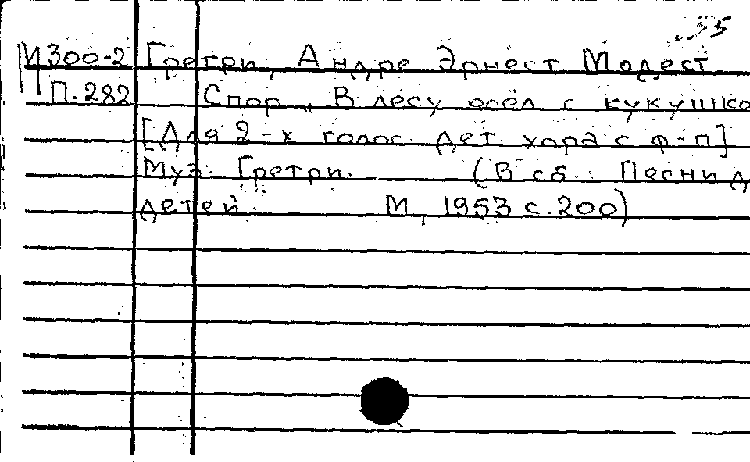 35
И300-2 Гретри, Андре Эрнест Модест
П.282 Спор. В лесу осёл с кукушко
[Для 2-х голос. дет. хора с ф-п]
Муз. Гретри. (В сб.: Песни д
детей. М., 1953 с. 200)